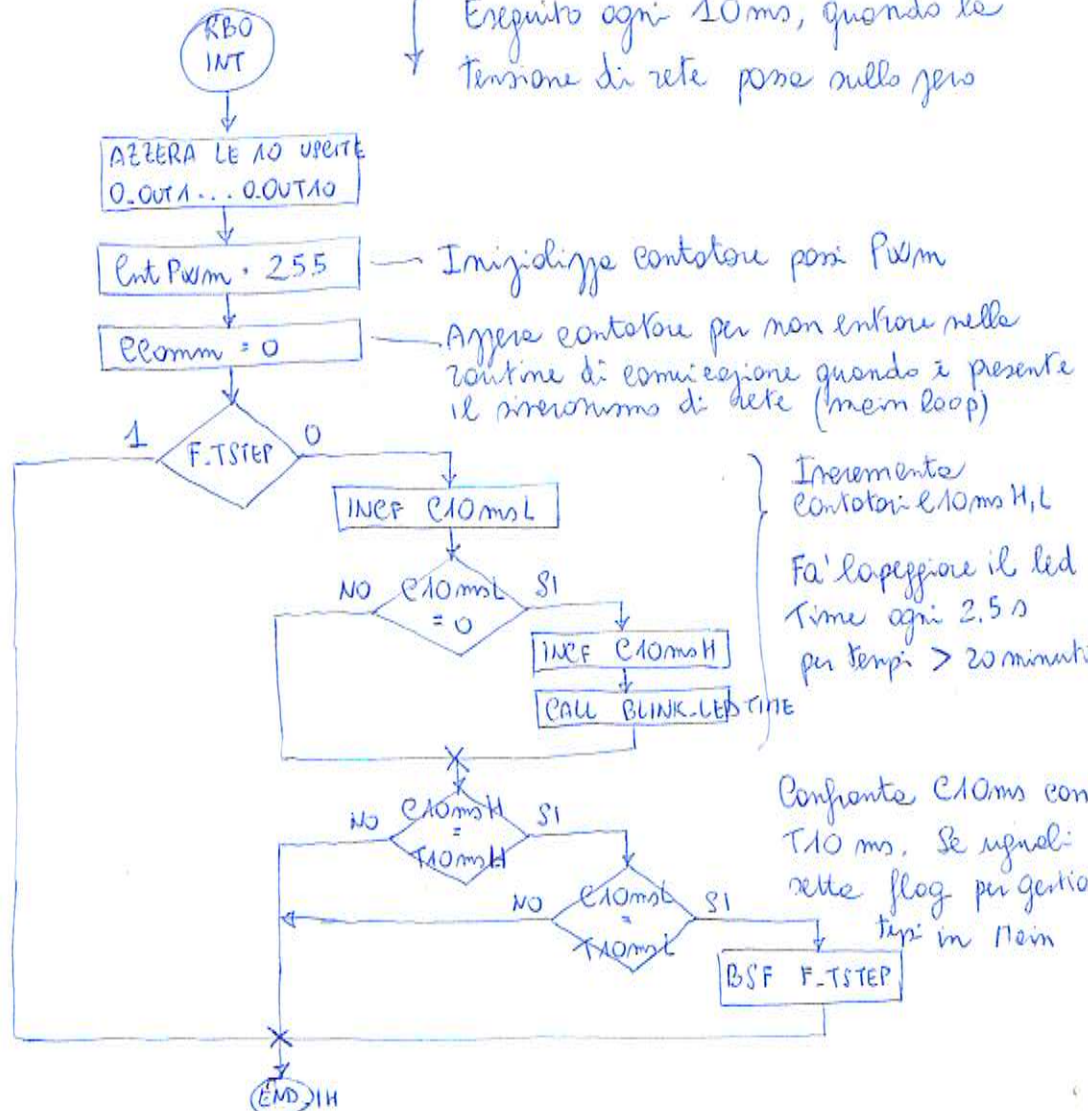 Eseguito ogni 10ms, quando la
tensione di rete passa sullo zero
RB0
INT
AZZERA LE 10 USCITE
O_OUT1... O_OUT10
CntPwm = 255
Inizializza contatore passi Pwm
CComm = 0
Azzera contatore per non entrare nella
routine di comunicazione quando è presente
il sincronismo di rete (main loop)
1
F_TSTEP
0
INCF C10msL
NO
C10msL
= 0
SI
INCF C10msH
CALL BLINK_LEDTIME
Incrementa
contatori C10ms H,L
Fa' lampeggiare il led
Time ogni 2,5 s
per tempi > 20 minuti
NO
C10msH
=
T10msH
SI
NO
C10msL
=
T10msL
SI
BSF F_TSTEP
Confronta C10ms con
T10 ms. Se uguali
setta flag per gestio
in Main
END_IH